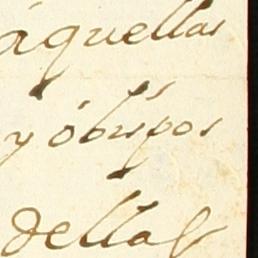 aquellas
y óbispos
dellas